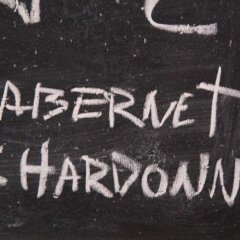 ABERNET
CHARDONN